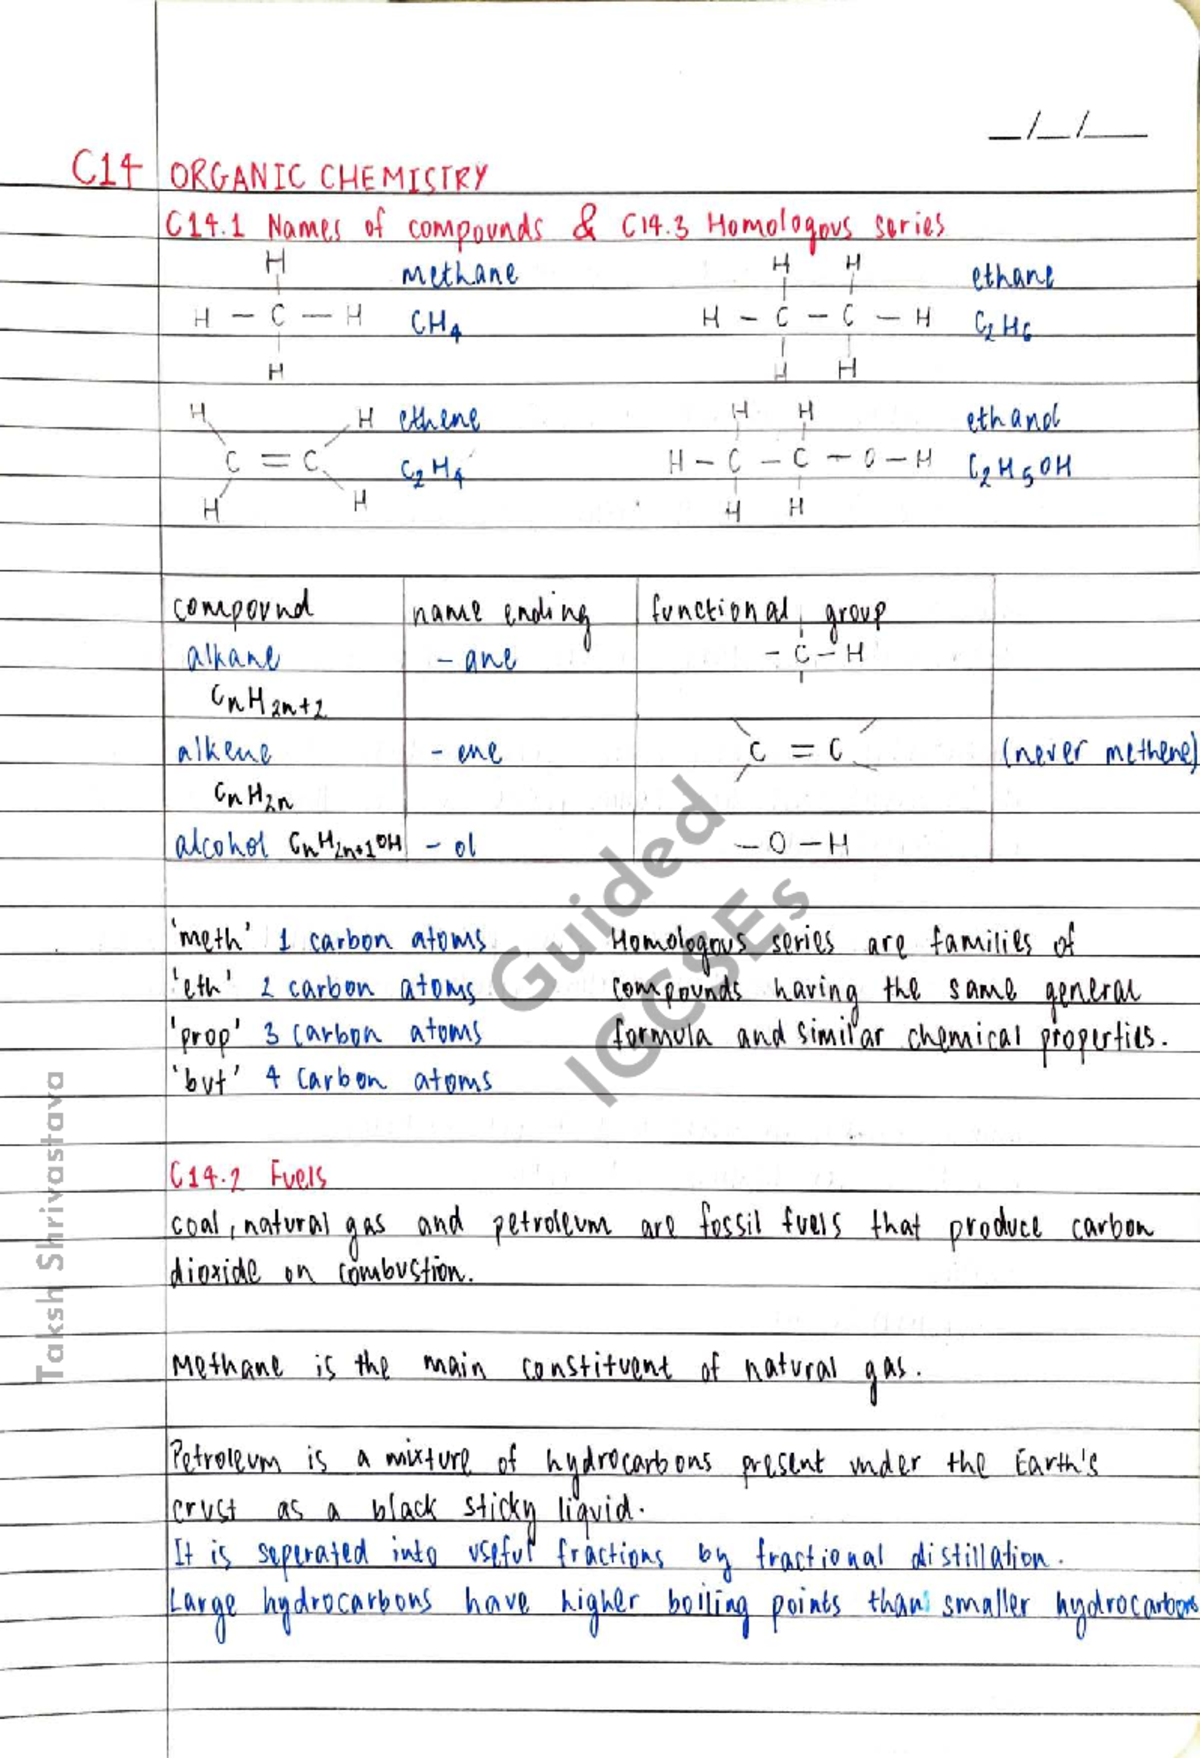 _/_/__
C14 ORGANIC CHEMISTRY
C14.1 Names of compounds & C14.3 Homologous series
H methane H H ethane
H - C - H CH4 H - C - C - H C2H6
H H H
H H ethene H H ethanol
C = C C2H4 H - C - C - O - H C2H5OH
H H H H
compound name ending functional group
alkane - ane - C - H
CnH2n+2
alkene - ene C = C (never methene)
CnH2n
alcohol CnH2n+1OH - ol - O - H
'meth' 1 carbon atoms
'eth' 2 carbon atoms
'prop' 3 carbon atoms
'but' 4 carbon atoms
Homologous series are families of
compounds having the same general
formula and similar chemical properties.
C14.2 Fuels
coal, natural gas and petroleum are fossil fuels that produce carbon
dioxide on combustion.
Methane is the main constituent of natural gas.
Petroleum is a mixture of hydrocarbons present under the Earth's
crust as a black sticky liquid.
It is seperated into useful fractions by fractional distillation.
Large hydrocarbons have higher boiling points than smaller hydrocarbons
Guided
IGCSEs
Taksh Shrivastava